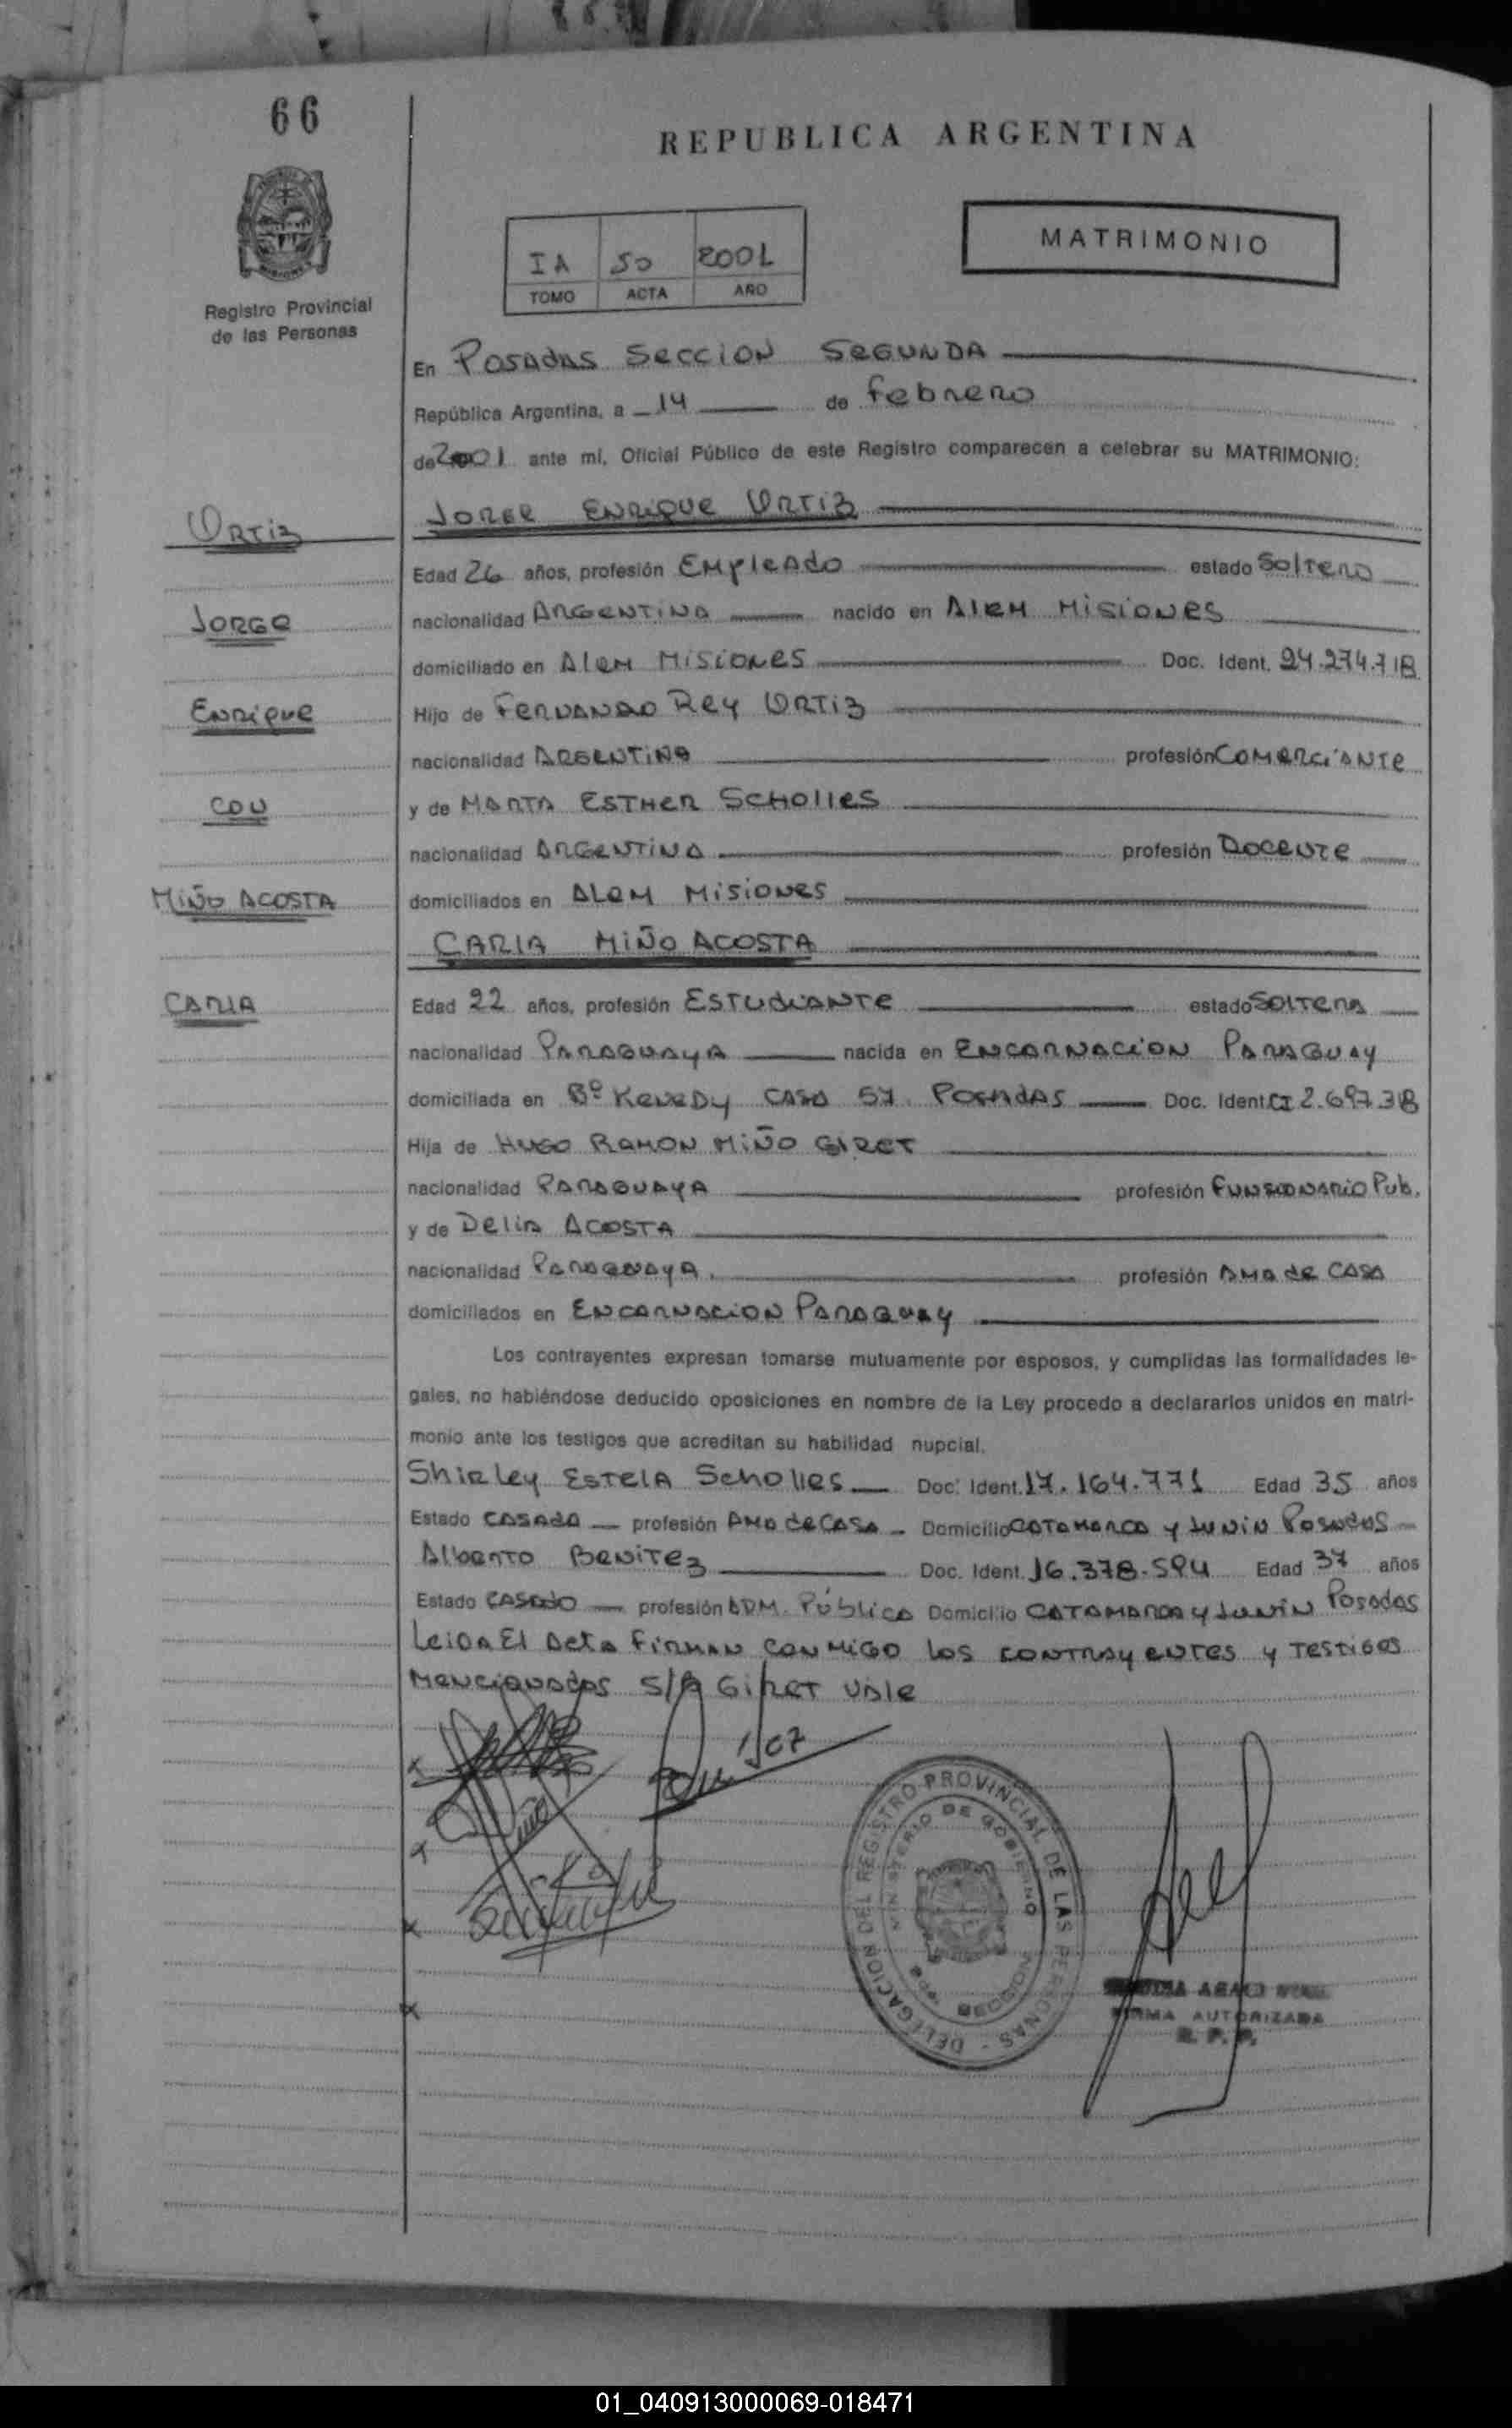 66
REPUBLICA ARGENTINA
Registro Provincial
de las Personas
IA 50 2001
TOMO ACTA AÑO
MATRIMONIO
En POSADAS SECCION SEGUNDA
República Argentina, a 14 de febrero
de 2001 ante mí, Oficial Público de este Registro comparecen a celebrar su MATRIMONIO:
ORTIZ
JORGE ENRIQUE ORTIZ
Edad 26 años, profesión EMPLEADO estado SOLTERO
JORGE
nacionalidad ARGENTINA nacido en ALEM MISIONES
domiciliado en ALEM MISIONES Doc. Ident. 24.274.718
ENRIQUE
Hijo de FERNANDO REY ORTIZ
nacionalidad ARGENTINA profesión COMERCIANTE
CON
y de MARTA ESTHER SCHOLLES
nacionalidad ARGENTINA profesión DOCENTE
MIÑO ACOSTA
domiciliados en ALEM MISIONES
CARLA MIÑO ACOSTA
CARLA
Edad 22 años, profesión ESTUDIANTE estado SOLTERA
nacionalidad PARAGUAYA nacida en ENCARNACION PARAGUAY
domiciliada en Bº KENEDY CASA 57 POSADAS Doc. Ident. CI 2.697.318
Hija de HUGO RAMON MIÑO GIRET
nacionalidad PARAGUAYA profesión FUNSIONARIO Pub.
y de DELIA ACOSTA
nacionalidad PARAGUAYA. profesión AMA de CASA
domiciliados en ENCARNACION PARAGUAY
Los contrayentes expresan tomarse mutuamente por esposos, y cumplidas las formalidades le-
gales, no habiéndose deducido oposiciones en nombre de la Ley procedo a declararlos unidos en matri-
monio ante los testigos que acreditan su habilidad nupcial.
Shirley ESTELA Scholles Doc. Ident. 17.164.771 Edad 35 años
Estado CASADA profesión AMA de CASA Domicilio CATAMARCA y JUNIN POSADAS
Alberto BENITEZ Doc. Ident. 16.378.594 Edad 37 años
Estado CASADO profesión ADM. Pública Domicilio CATAMARCA y JUNIN Posadas
LEIDA El Acta FIRMAN CONMIGO los CONTRAYENTES y TESTIGOS
MENCIONADOS S/R GIRET VALE
DELEGACION DEL REGISTRO PROVINCIAL DE LAS PERSONAS -
MINISTERIO DE GOBIERNO
SECCION
FIRMA AUTORIZADA
R. P. P.
01_040913000069-018471